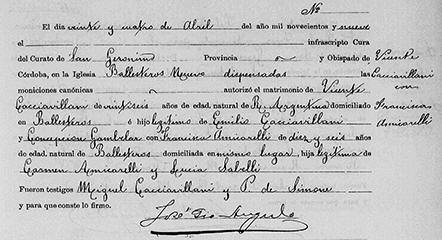 Nº
El dia veinte y cuatro de Abril del año mil novecientos y nueve
el infrascripto Cura
del Curato de San Geronimo Provincia y Obispado de
Córdoba, en la Iglesia Ballesteros Nuevo dispensadas las
moniciones canónicas autorizó el matrimonio de Vicente
Cacciavillani de veintiseis años de edad. natural de R. Argentina domiciliado
en Ballesteros é hijo legitimo de Emilio Cacciavillani
y Concepcion Gambelar con Francisca Amicarelli de diez y seis años
de edad. natural de Ballesteros domiciliada en mismo lugar hija legitima de
Carmen Amicarelli y Lucia Sabelli
Fueron testigos Miguel Cacciavillani y P. de Simone
y para que conste lo firmo.
José Angulo
Vicente
Cacciavillani
con
Francisca
Amicarelli